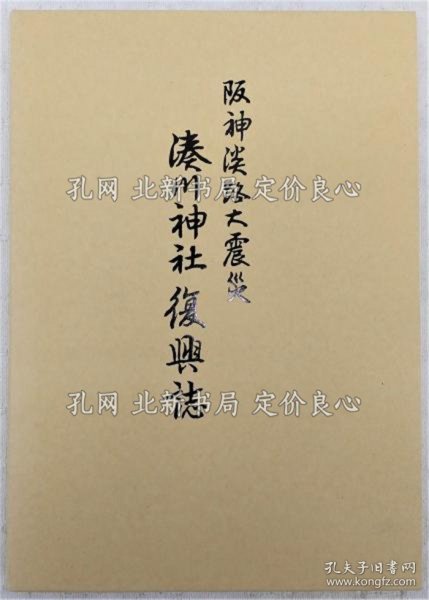 阪神淡路大震災
湊川神社復興誌
孔网 北新书局 定价良心
孔网 北新书局 定价良心
孔夫子旧书网
book.kongfz.com